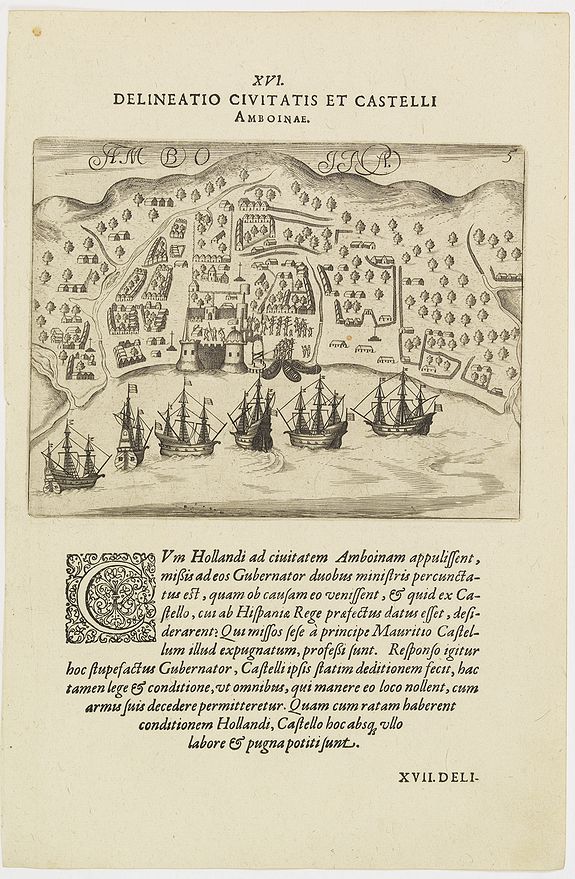 XVI.
DELINEATIO CIVITATIS ET CASTELLI
AMBOINAE.
AMBOINA.
5
CVm Hollandi ad ciuitatem Amboinam appulissent,
missis ad eos Gubernator duobus ministris percuncta-
tus est, quam ob causam eo venissent, & quid ex Ca-
stello, cui ab Hispaniæ Rege præfectus datus esset, desi-
derarent: Qui missos sese à principe Mauritio Castel-
lum illud expugnatum, professi sunt. Responso igitur
hoc stupefactus Gubernator, Castelli ipsis statim deditionem fecit, hac
tamen lege & conditione, vt omnibus, qui manere eo loco nollent, cum
armis suis decedere permitteretur. Quam cum ratam haberent
conditionem Hollandi, Castello hoc absq; vllo
labore & pugna potiti sunt.
XVII. DELI-